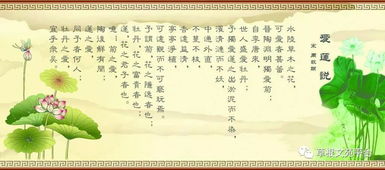 愛蓮說
宋 周敦頤
水陸草木之花,
可愛者甚蕃。
晉陶淵明獨愛菊;
自李唐來,
世人盛愛牡丹;
予獨愛蓮之出淤泥而不染,
濯清漣而不妖,
中通外直,
不蔓不枝,
香遠益清,
亭亭淨植,
可遠觀而不可褻玩焉。
予謂菊,花之隱逸者也;
牡丹,花之富貴者也;
蓮,花之君子者也。
噫!菊之愛,
陶後鮮有聞;
蓮之愛,
同予者何人;
牡丹之愛,
宜乎眾矣。